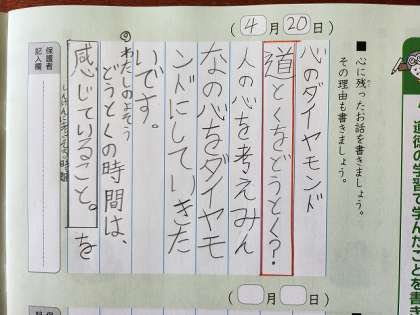 道徳の学習で学んだことを書き
■心に残ったお話を書きましょう。
その理由も書きましょう。
(4月20日)
心のダイヤモンド
道とくをどうとく?
人の心を考えみん
なの心をダイヤモ
ンドにしていきた
いです。
◎わたしのよそう
どうとくの時間は、
感じていること。を
しんけんに考える時間
保護者
記入欄
(月日)